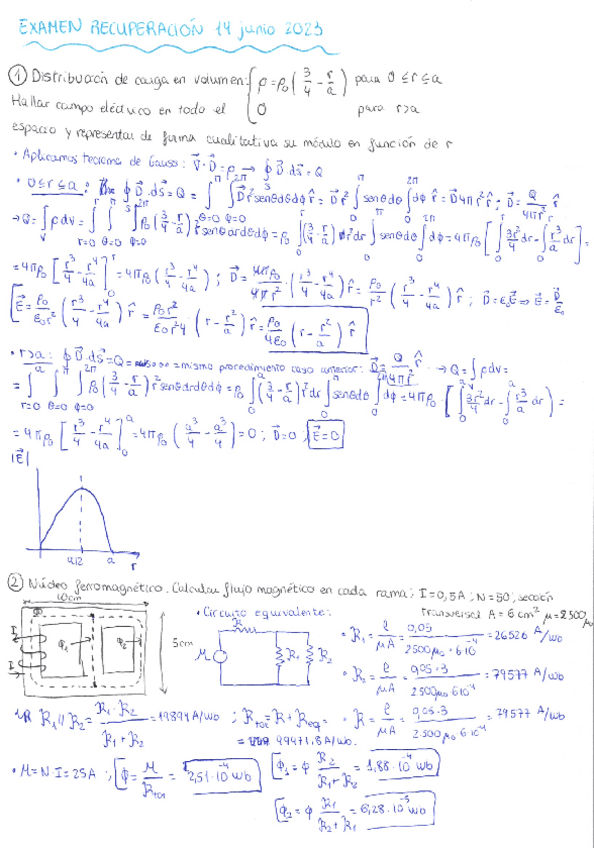 EXAMEN RECUPERACIÓN 14 junio 2023
① Distribución de carga en volumen: { ρ = ρ₀ (3/4 - r/a) para 0 ≤ r ≤ a
Hallar campo eléctrico en todo el { 0 para r>a
espacio y representar de forma cualitativa su módulo en función de r
• Aplicamos teorema de Gauss: ∇·D = ρ → ∮ D·ds = Q
• 0≤r≤a: ∮ D·ds = Q = ∫∫ D r² senθ dθ dφ r̂ = D r² ∫ senθ dθ ∫ dφ r̂ = D 4π r² r̂ ; D = Q/4πr² r̂
→ Q = ∫ρ dv = ∫∫∫ ρ₀ (3/4 - r/a) r² senθ dr dθ dφ = ρ₀ ∫ (3/4 - r/a) r² dr ∫ senθ dθ ∫ dφ = 4πρ₀ [∫ 3r²/4 dr - ∫ r³/a dr] =
= 4πρ₀ [r³/4 - r⁴/4a] = 4πρ₀ (r³/4 - r⁴/4a) ; D = 4πρ₀/4πr² · (r³/4 - r⁴/4a) r̂ = ρ₀/r² (r³/4 - r⁴/4a) r̂ ; D = ε₀E ⇒ E = D/ε₀
E = ρ₀/ε₀r² (r³/4 - r⁴/4a) r̂ = ρ₀r²/ε₀r²4 (r - r²/a) r̂ = ρ₀/4ε₀ (r - r²/a) r̂
• r>a: ∮ D·ds = Q = mismo procedimiento caso anterior: D = Q/4πr² r̂ → Q = ∫ρ dv =
= ∫∫∫ ρ₀ (3/4 - r/a) r² senθ dr dθ dφ = ρ₀ ∫ (3/4 - r/a) r² dr ∫ senθ dθ ∫ dφ = 4πρ₀ [∫ 3r²/4 dr - ∫ r³/a dr] =
= 4πρ₀ [r³/4 - r⁴/4a] = 4πρ₀ (a³/4 - a³/4) = 0 ; D = 0 ; E = 0
|E|
a/2 a r
② Núcleo ferromagnético. Calcular flujo magnético en cada rama; I = 0,5A ; N = 50 ; sección
transversal A = 6 cm² μ = 2500 μ₀
10cm
5cm
I
I
ϕ₁
ϕ₂
• Circuito equivalente:
R
M
R₁
R₂
• R₁ = l/μA = 0,05/2500μ₀·6·10⁻⁴ = 26526 A/wb
• R₂ = l/μA = 0,05·3/2500μ₀·6·10⁻⁴ = 79577 A/wb
R₁ // R₂ = R₁·R₂/R₁+R₂ = 19894 A/wb ; Rtot = R + Req =
= 99471,8 A/wb.
• R = l/μA = 0,05·3/2500μ₀·6·10⁻⁴ = 79577 A/wb
• M = N·I = 25A ; ϕ = M/Rtot = 2,51·10⁻⁴ wb
ϕ₁ = ϕ R₂/R₁+R₂ = 1,88·10⁻⁴ wb
ϕ₂ = ϕ R₁/R₂+R₁ = 6,28·10⁻⁵ wb